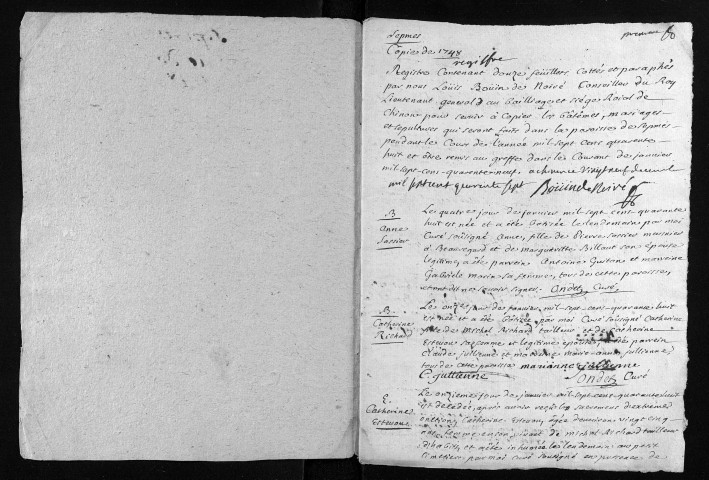 Sepmes
premier
Copies de 1748
registre
Registre Contenant douze feuillets Cottés et paraphés
par nous Louis Boüin de Noiré Conseiller du Roy
Lieutenant general au bailliage et siege Roïal de
Chinon pour servir à Copier les bâtêmes, mariages
et sepultures qui seront faits dans la paroisse de sepmes
pendant le Cours de l'année mil-sept cens quarente-
huit et être remis au greffe dans le Courant de janvier
mil-sept-cens-quarente-neuf. a chinon ce vingt neuf
mil sept cent quarente sept Boüin de Noiré
B
Anne
Le quatre jour de janvier mil-sept cent-quarante
huit est née et a été batisée le lendemain par moi
Curé soussigné Anne, fille de Pierre
à Beauregard et de Margueritte Billaut son epouse
legitime, a été parrein Antoine et marreine
Gabriele marie sa femme, tous de cette paroisse,
et ont dit ne sçavoir signer. Ondet Curé
B
Catherine
Richard
Le onze jour de janvier mil-sept-cens-quarante huit
est née et a été batizée par moi Curé soussigné Catherine
fille de Michel Richard tailleur et de Catherine
Estevou sa femme et legitime epouse, a été parrein
Claude jullienne et marreine marie-anne jullienne,
tous de cette paroisse marianne jullienne
C. jullienne Ondet Curé
S.
Catherine
Estevou
Le onzieme jour de janvier mil-sept-cens-quarante huit
est decedée, après avoir reçu le sacrement d'extreme
onction, Catherine Estevou, agée d'environ vingt cinq
ans, de michel Richard tailleur
d'habits, et a été inhumée le lendemain au petit
Cimetiere par moi curé soussigné en presence de